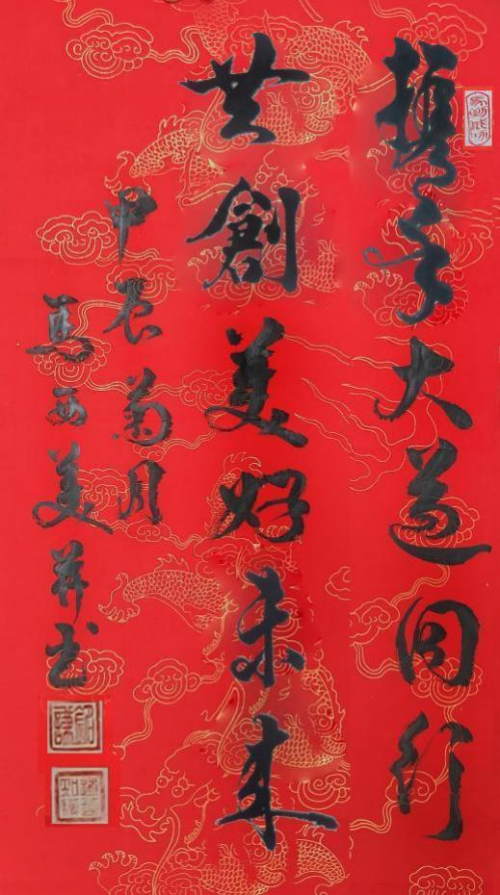 携手大道同行
共創美好未来
甲辰菊月
馬西美并书